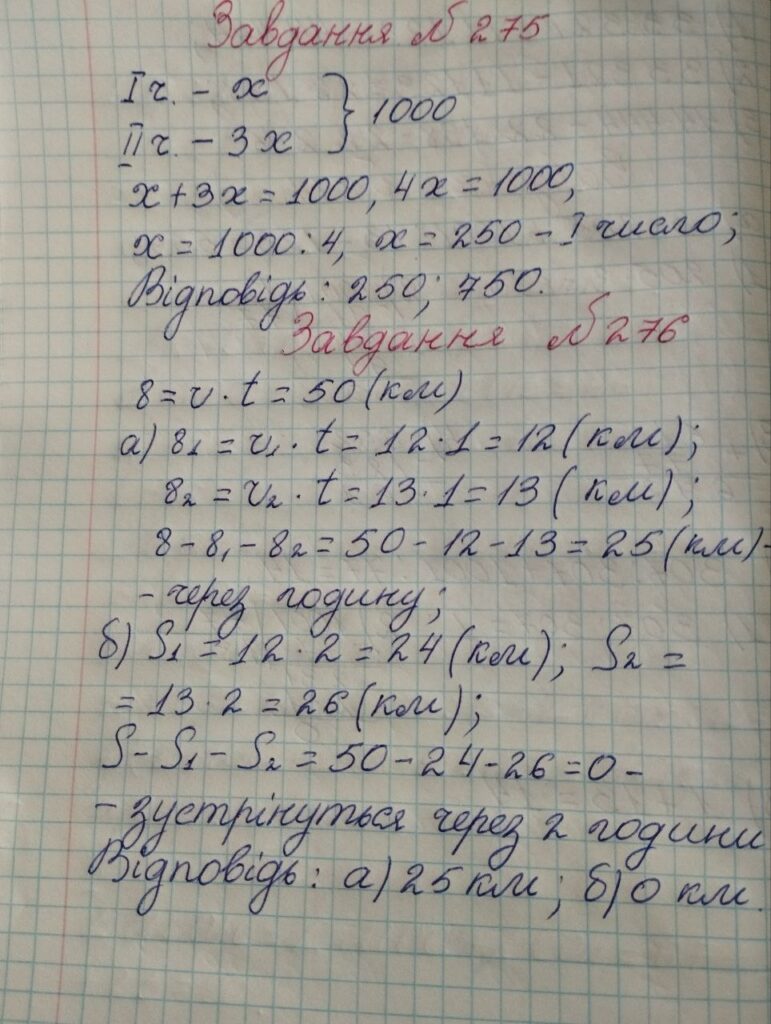 Завдання № 275
I ч. – x
II ч. – 3x } 1000
x + 3x = 1000, 4x = 1000,
x = 1000 : 4, x = 250 – I число;
Відповідь: 250; 750.
Завдання № 276
s = v · t = 50 (км)
а) s₁ = v₁ · t = 12 · 1 = 12 (км);
s₂ = v₂ · t = 13 · 1 = 13 (км);
s – s₁ – s₂ = 50 – 12 – 13 = 25 (км) –
– через годину;
б) S₁ = 12 · 2 = 24 (км); S₂ =
= 13 · 2 = 26 (км);
S – S₁ – S₂ = 50 – 24 – 26 = 0 –
– зустрінуться через 2 години
Відповідь: а) 25 км; б) 0 км.